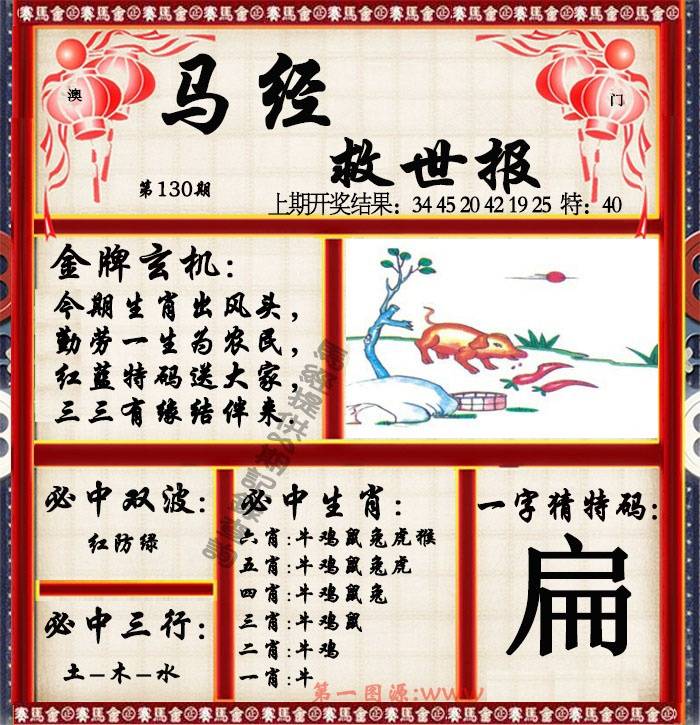 賽馬會金正賽馬會金正賽馬會金正賽馬會金正賽馬會金正
澳
门
马经
救世报
第130期
上期开奖结果：34 45 20 42 19 25 特：40
金牌玄机：
今期生肖出风头，
勤劳一生为农民，
红蓝特码送大家，
三三有缘结伴来.
必中双波：
红防绿
必中三行：
土-木-水
必中生肖：
六肖：牛鸡鼠兔虎猴
五肖：牛鸡鼠兔虎
四肖：牛鸡鼠兔
三肖：牛鸡鼠
二肖：牛鸡
一肖：牛
一字猜特码：
扁
第一图源：www